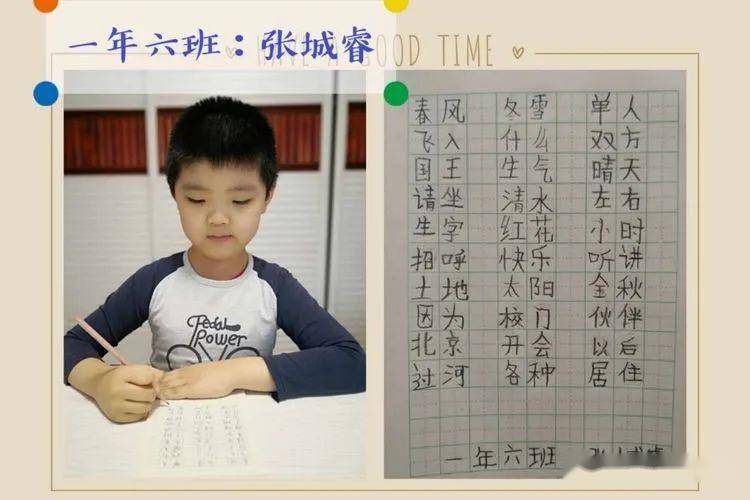 一年六班：张城睿
HAVE A GOOD TIME
Pedal
Power
春风 冬雪 单人
飞入 什么 双方
国王 生气 晴天
请坐 清水 左右
生字 红花 小时
招呼 快乐 听讲
土地 太阳 金秋
因为 校门 伙伴
北京 开会 以后
过河 各种 居住
一年六班 张城